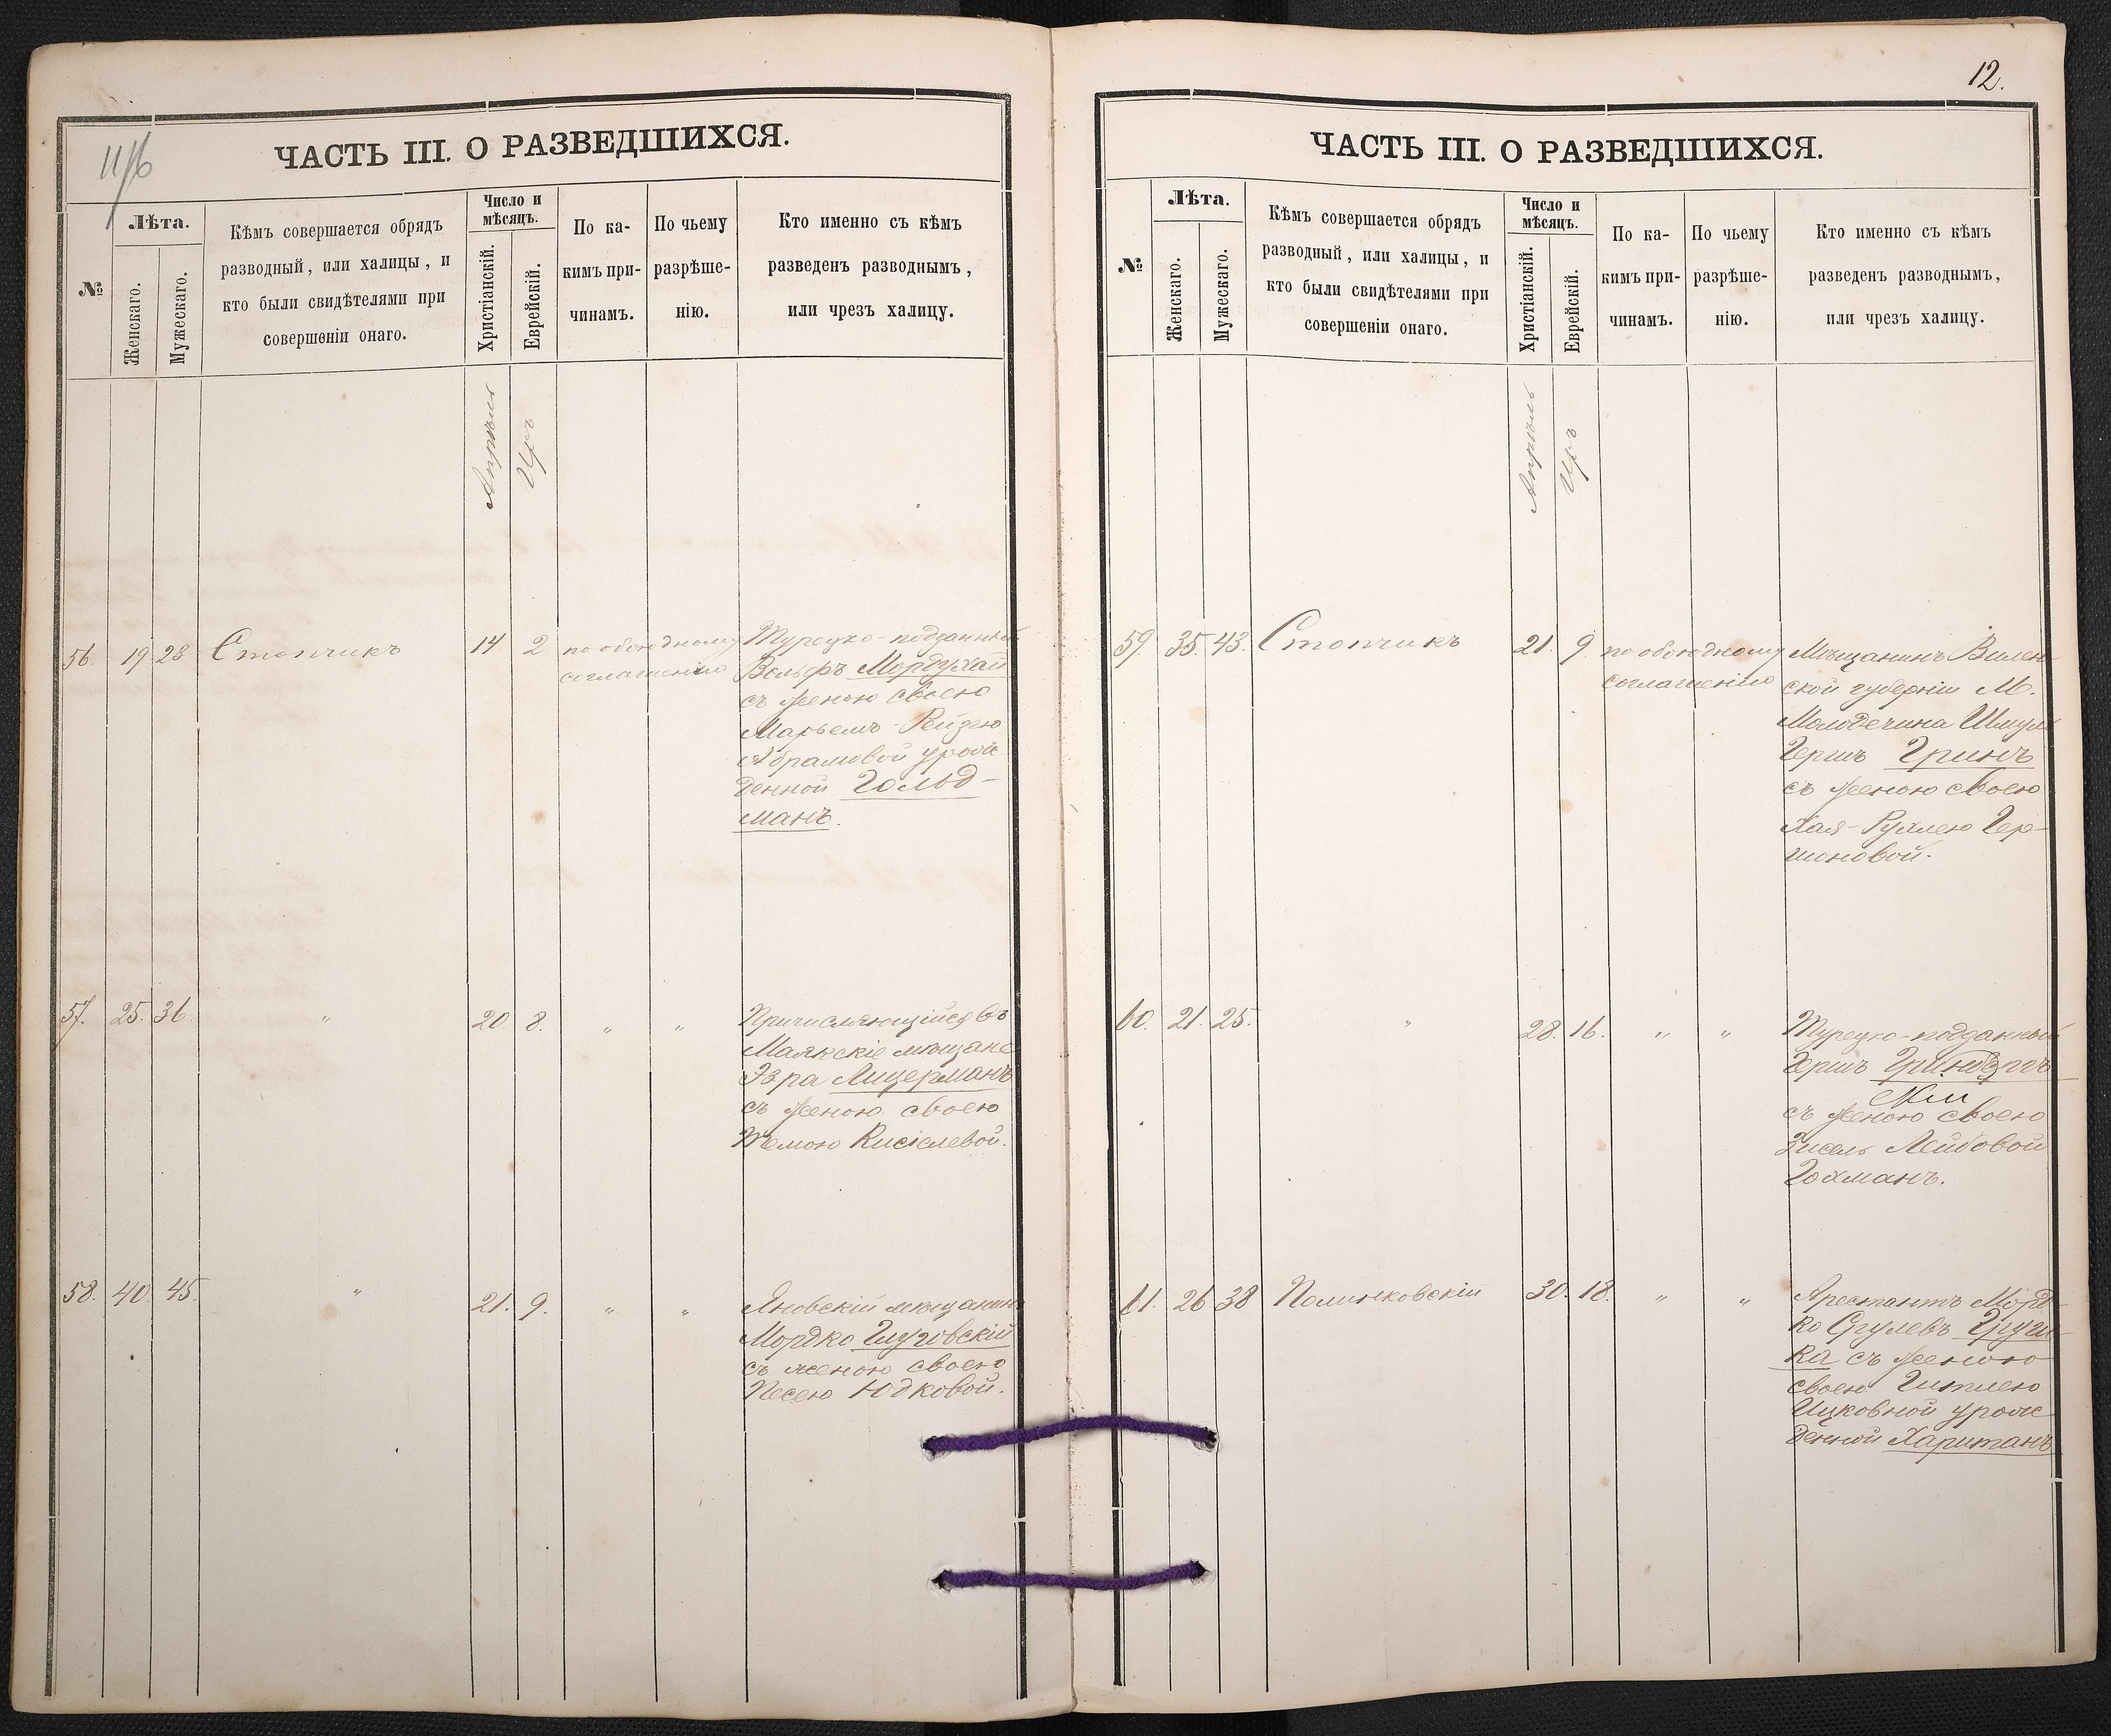 11/б
ЧАСТЬ III. О РАЗВЕДШИХСЯ.
№
Лѣта.
Женскаго.
Мужескаго.
Кѣмъ совершается обрядъ
разводный, или халицы, и
кто были свидѣтелями при
совершеніи онаго.
Число и
мѣсяцъ.
Христіанскій.
Еврейскій.
По ка-
кимъ при-
чинамъ.
По чьему
разрѣше-
нію.
Кто именно съ кѣмъ
разведенъ разводнымъ,
или чрезъ халицу.
Апрѣль
Иръ
56. 19 23 Стопчикъ 14 2 по обоюдному
соглашенію
Турецко-подданный
Вольфъ Мордухай
съ женою своею
Марьемъ-Рейзею
Абрамовой урож
денной Гольд-
манъ.
57. 25. 36 " 20. 8. " "
Причисляющійся въ
Маякскіе мѣщане
Эзра Лицерманъ
съ женою своею
Кисіелевой.
58. 40 45. " 21. 9. " "
Яновскій мѣщанинъ
Мордко Глуховскій
съ женою своею
Песею Юдковой.
12.
ЧАСТЬ III. О РАЗВЕДШИХСЯ.
№
Лѣта.
Женскаго.
Мужескаго.
Кѣмъ совершается обрядъ
разводный, или халицы, и
кто были свидѣтелями при
совершеніи онаго.
Число и
мѣсяцъ.
Христіанскій.
Еврейскій.
По ка-
кимъ при-
чинамъ.
По чьему
разрѣше-
нію.
Кто именно съ кѣмъ
разведенъ разводнымъ,
или чрезъ халицу.
Апрѣль
Иръ
59. 35. 43. Стопчикъ 21. 9. по обоюдному
соглашенію
Мѣщанинъ Вилен-
ской губерніи М.
Молодечина Шмуль
Гершъ Гринъ
съ женою своею
Хая-Рухлею Гер-
шоновой.
60. 21. 25. " 28. 16. " "
Турецко-подданный
Гершъ
съ женою своею
Зисель Лейбовой
Гохманъ.
61. 26 38 Полинковскій 30. 18. " "
Арестантъ Морд-
ко Сруlевъ
ка съ женою
своею Гитлею
Ицковной урож
денной Хаританъ